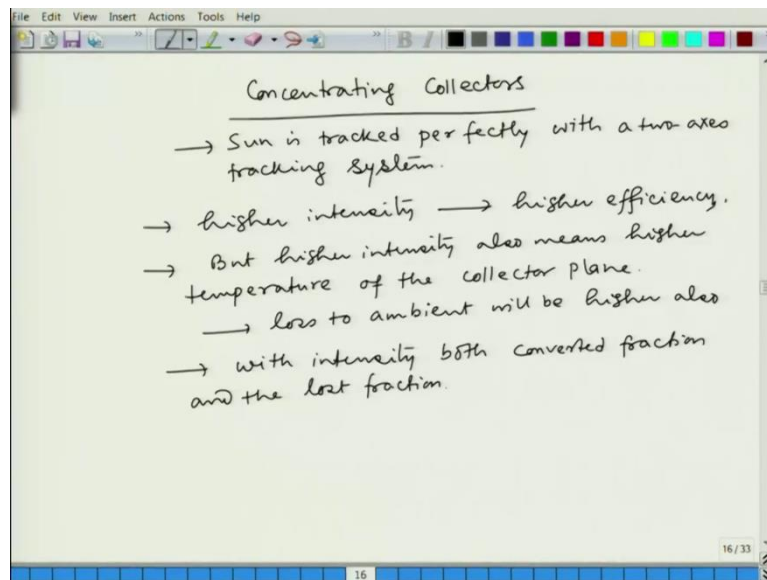 File Edit View Insert Actions Tools Help
B I
Concentrating Collectors
→ Sun is tracked perfectly with a two axes
tracking system.
→ higher intensity → higher efficiency.
→ But higher intensity also means higher
temperature of the collector plane.
→ loss to ambient will be higher also
→ with intensity both converted fraction
and the lost fraction.
16 / 33
16